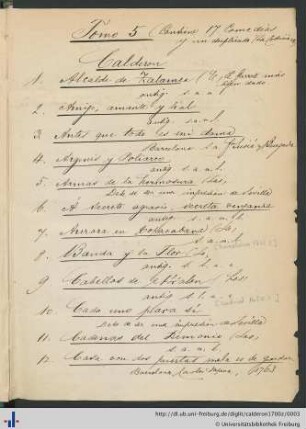 Tomo 5 (Contiene 17 Comedias
y un duplicado
Calderon
1. Alcalde de Zalamea (El,
antig. s. a. l.
2. Amigo, amante y leal
antig. s. a. l.
3 Antes que todo es mi dama
Barcelona
4. Argenis y Poliarco
antig. s. a. l.
5. Armas de la hermosura (Las,
Debe de ser una impresión de Sevilla
6. A secreto agravio, secreta venganza
antig. s. a. l.
7. Aurora en Copacabana (La,
s. a. l.
8. Banda y la Flor (La,
antig. s. l. a.
9. Cabellos de Absalon (Los,
antig. s. l. a.
10. Cada uno para sí
Debe de ser una impresión de Sevilla
11. Cadenas del Demonio (Las,
s. a. l.
12. Casa con dos puertas mala es de guardar
Barcelona,
http://dl.ub.uni-freiburg.de/diglit/calderon1780z/0003
© Universitätsbibliothek Freiburg